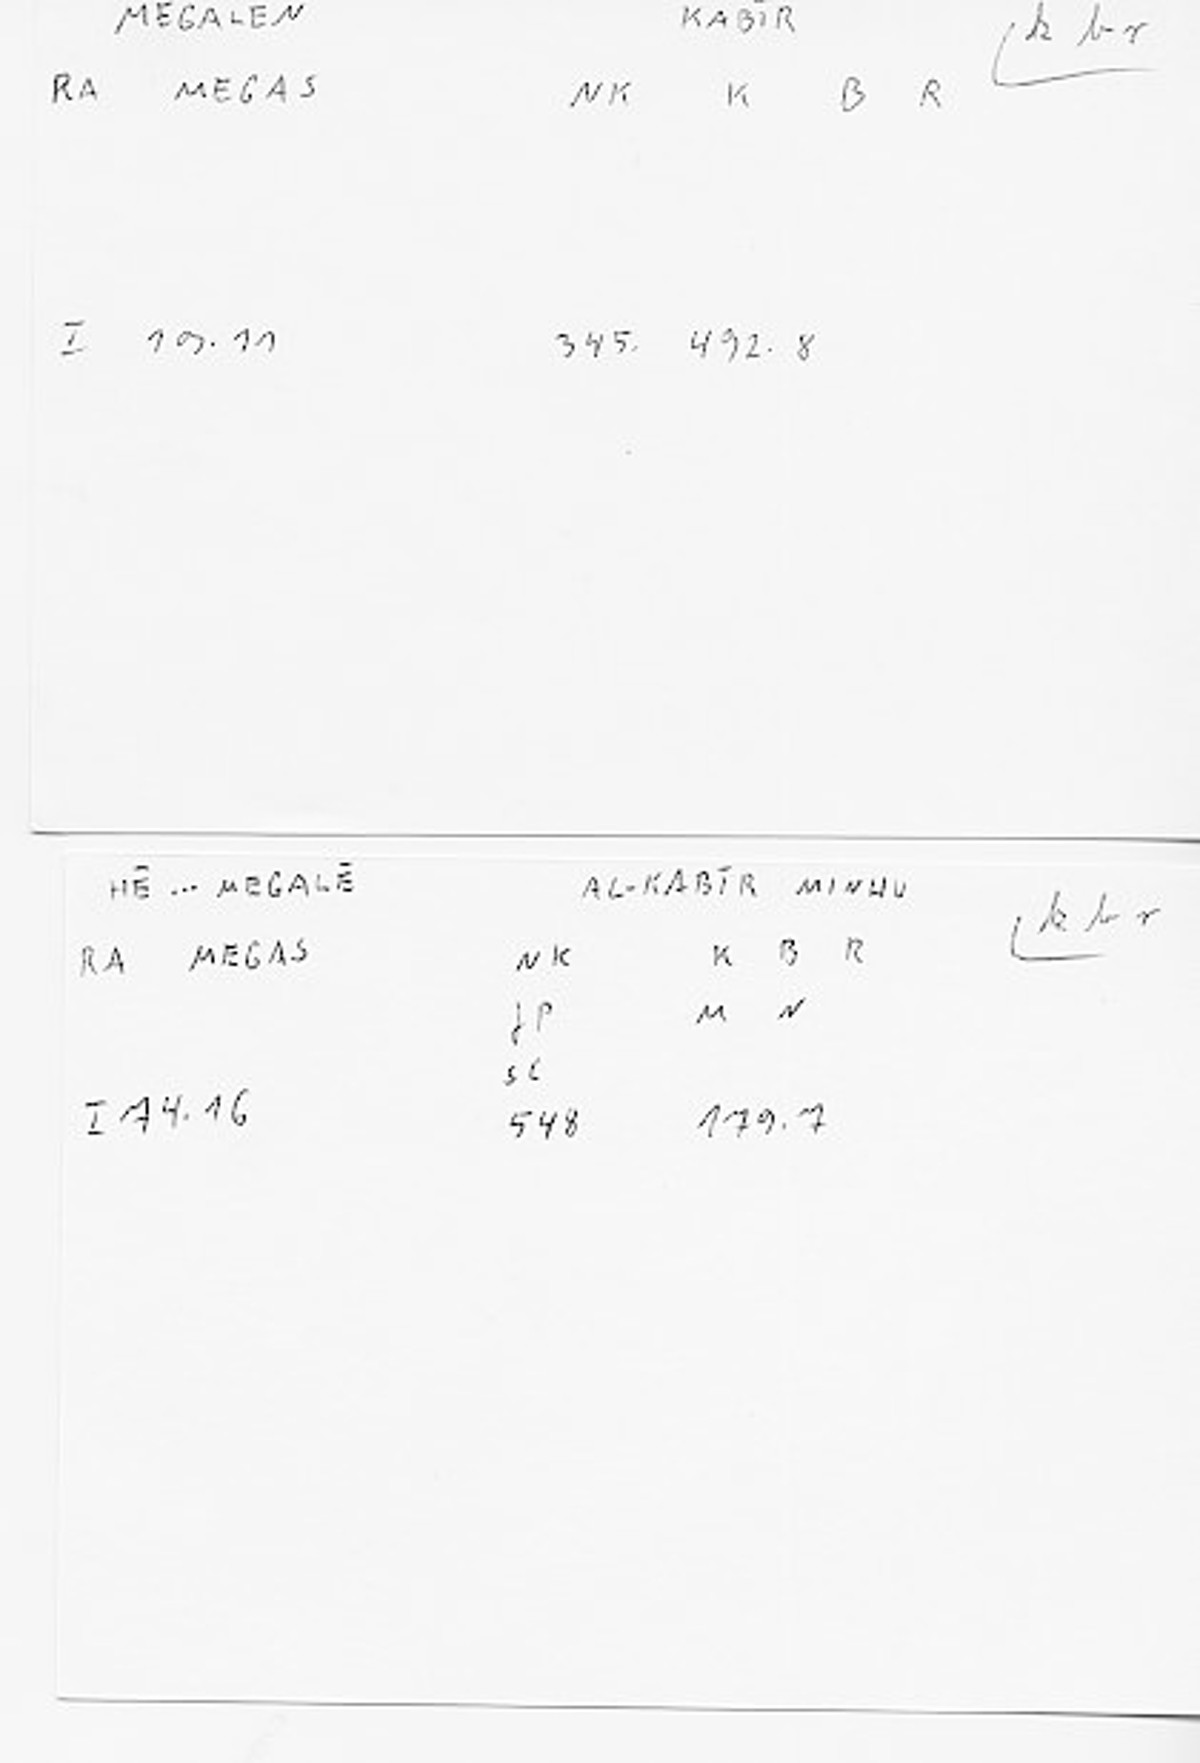 MEGALEN KABĪR k b r
RA MEGAS NK K B R
I 19.11 345. 492.8
HĒ ... MEGALĒ AL-KABĪR MINHU k b r
RA MEGAS NK K B R
M N
I 74.16 548 179.7